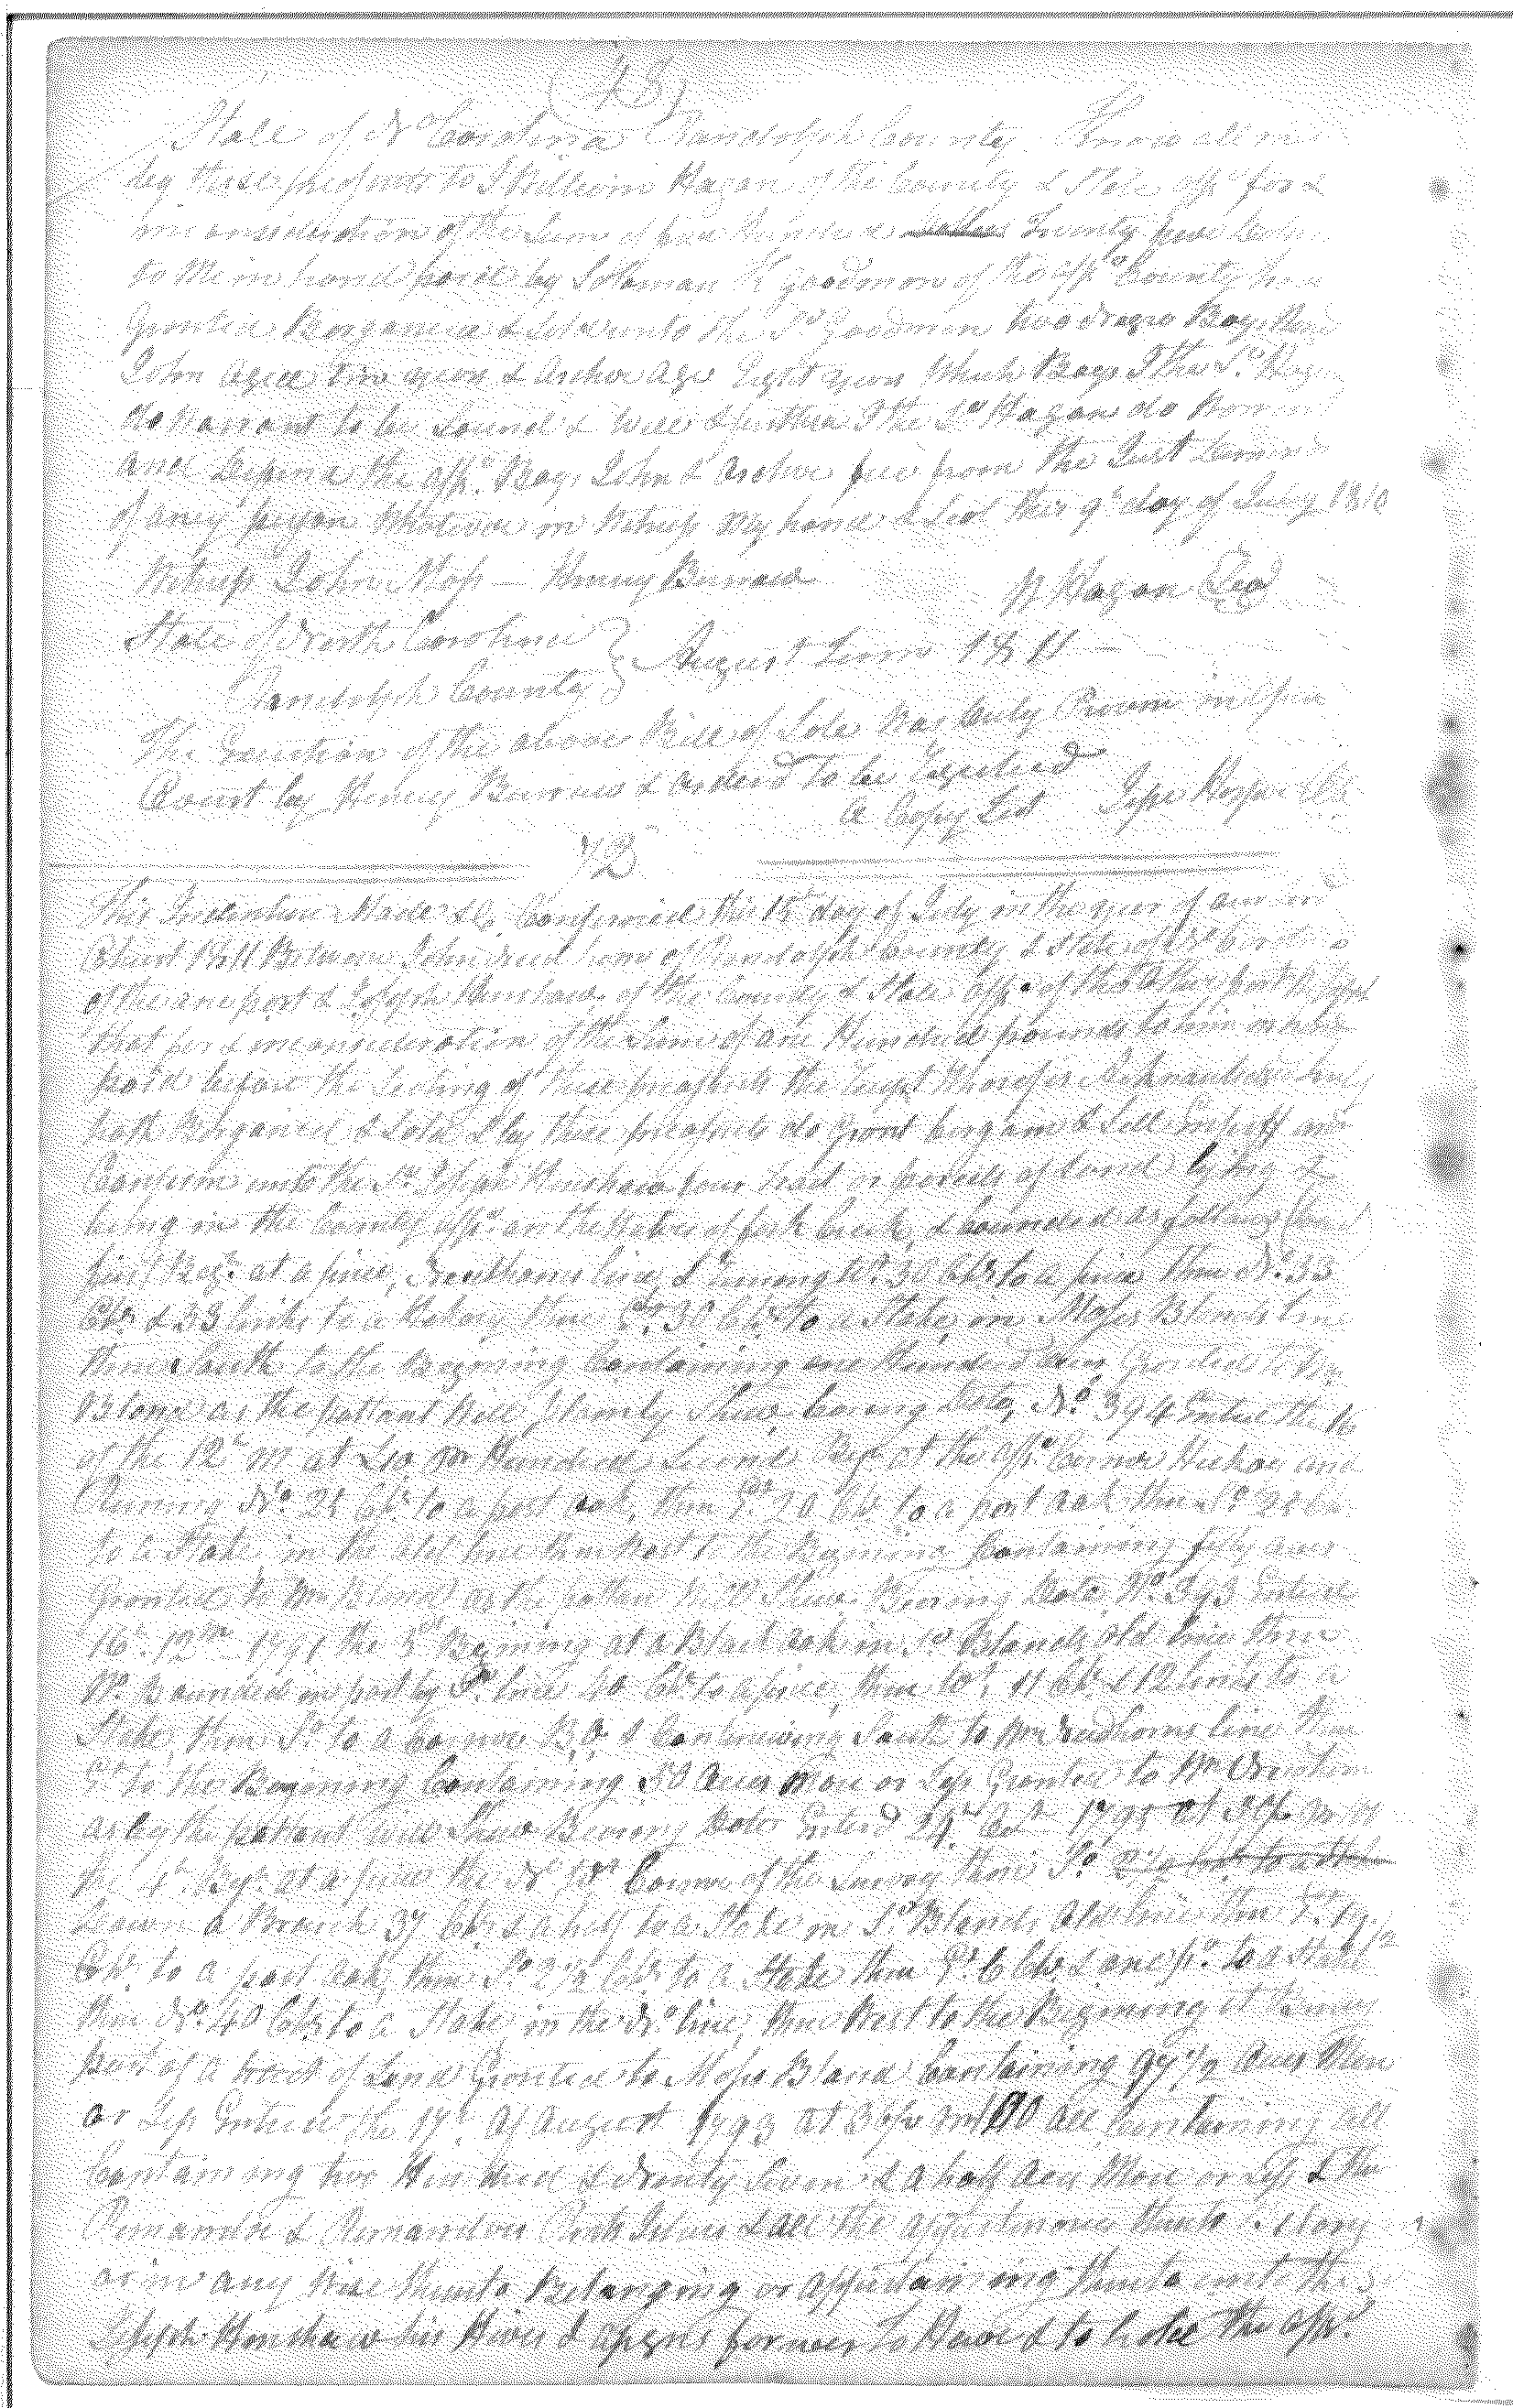 (28)
State of No Carolina Randolph County. Know all m
by these presents to I William Hagan of the County & State affd for &
in consideration of the Sum of five Hundred Dollars Twenty five
to Me in hand paid by Soloman K Goodman of the affd County
Granted Bargained & Sold unto the Sd Goodman two Negro Boys
John aged Two years & Archer age Eight years Which Boys I the Sd Hagan
do Warrant to be Sound & Well & further I the Sd Hagan do
and Defend the affd Boys John & Archer free from the Just
of aney person Whatever in Witness My hand & Seal this 9th day of July 1810
Witness John Moss — Henry Burrow
W Hagan Seal
State of North Carolina
Randolph County } August Term 1811 —
The Execution of the above Bill of Sale Was Duly Proven in Open
Court by Henry Burrow & ordered to be Registered
A Copy Test Jesse Harper Clk
This Indenture Made & Confirmed this 15th day of July in the year of our
Christ 1811 Between John Needham of Randolph County & State of No Carolina
of the one part & Joseph Henshaw of the County & State affd of the other part
that for & in consideration of the Sum of one Hundred pounds to him in hand
paid before the Sealing of these presents the Receipt Whereof is
hath Bargained & Sold & by these presents do Grant bargain & Sell
Confirm unto the Sd Joseph Henshaw four tract or parcels of Land lying &
being in the County affd on the Waters of fork Creek, & bounded as follows
first Begn at a pine, Needhams line & Runing Wt 30 Chs to a pine then No 33
Chs & 33 links to a Hickory then Et 30 Chs to a Stake on Moses Blands line
thence South to the Begining Containing one Hundred Acres Granted to
Bland as the pattant Will plainly Shew bearing Date, No 394 Entered the 16
of the 12th m at Second Begn at the affd Corner Hickory and
Runing No 25 Chs to a post oak, then Et 20 Chs to a post oak then So 25 Chs
to a Stake in the old line then West to the Begining Containing fifty acres
Granted to Wm Bland as the pattan Will Shew Bearing Date No 393 Entered
16th 12th 1791 the 3d Begining at a Black oak in Sd Blands old line then
No Bounded in part by Sd line 40 Chs to a pine, then Wt 11 Chs & 12 links to a
Stake, then So to a Corner B,O, & Continuing South to Wm Needhams line then
Et to the Begining Containing 50 Acres More or Less Granted to Wm
as by the pattant will Shew Bearing Date Entered 24th 1795
the 4th Begn at a pine the No Wt Corner of the Survey then So
Down a Branch 37 Chs & a half to a Stake in Sd Blands old line then Et 19 1/2
Chs to a post oak, then So 2 1/2 Chs to a Stake then Et 6 Chs & one to a Stake
then No 40 Chs to a Stake in the No line, then West to the Begining it Being
part of a tract of Land Granted to Moses Bland Containing 97 1/2 Acres More
or Less Entered the 17th of August 1793 all Containing all
Containing two Hundred & Ninety Seven & a half Acres More or Less & the
Remainder & Remainders Rents Issues & all the appurtenances thereto
or in any wise thereunto Belonging or appertaining thereto unto the Sd
Joseph Henshaw his Heirs & assigns forever To Have & to hold the affd